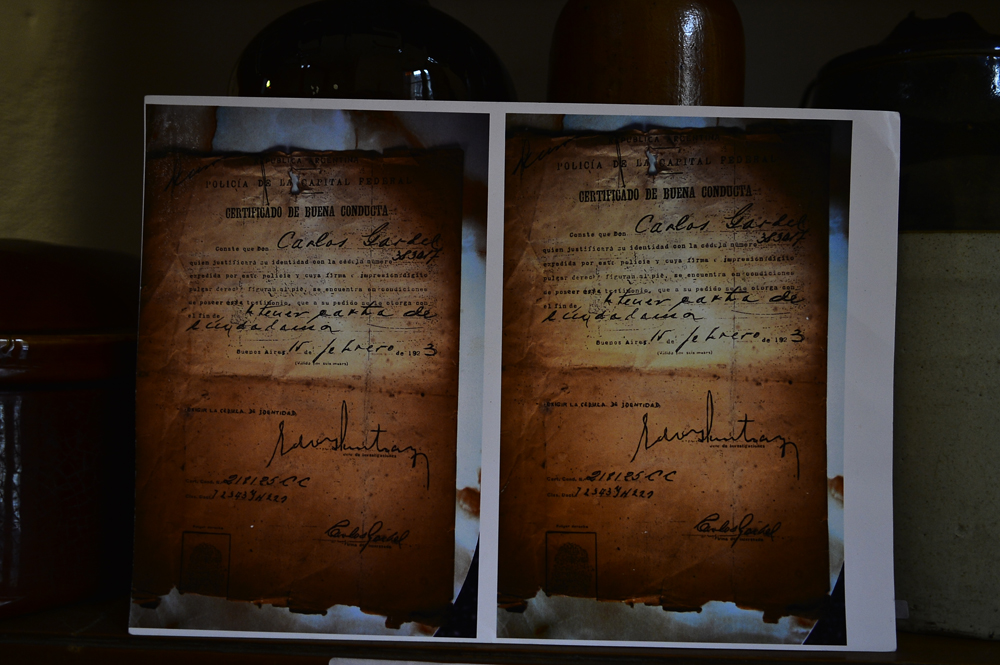 POLICIA DE LA CAPITAL FEDERAL
CERTIFICADO DE BUENA CONDUCTA
Conste que Don Carlos Gardel
quien justificará su identidad con la cédula número 383017
expedida por esta policia y cuya firma e impresión dígito
pulgar derecho figuran al pié, se encuentra en condiciones
de poseer este testimonio, que a su pedido se le otorga con
el fin de obtener carta de
ciudadanía
Buenos Aires, de febrero de 1923
SEGUN LA CEDULA DE IDENTIDAD
Jefe de Investigaciones
218125 CC
Carlos Gardel
POLICIA DE LA CAPITAL FEDERAL
CERTIFICADO DE BUENA CONDUCTA
Conste que Don Carlos Gardel
quien justificará su identidad con la cédula número 383017
expedida por esta policia y cuya firma e impresión dígito
pulgar derecho figuran al pié, se encuentra en condiciones
de poseer este testimonio, que a su pedido se le otorga con
el fin de obtener carta de
ciudadanía
Buenos Aires, de febrero de 1923
SEGUN LA CEDULA DE IDENTIDAD
Jefe de Investigaciones
218125 CC
Carlos Gardel